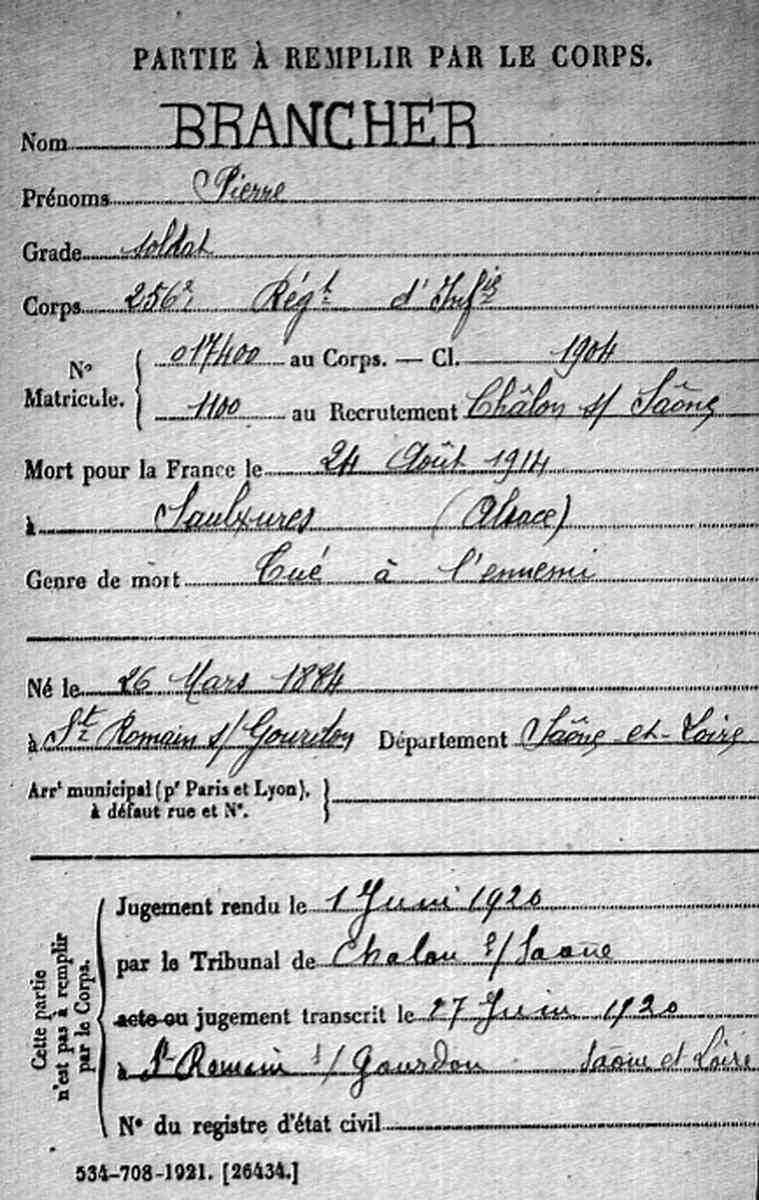 PARTIE À REMPLIR PAR LE CORPS.
Nom BRANCHER
Prénoms Pierre
Grade soldat
Corps 256e Régt d'Infie
No Matricule. 017400 au Corps. — Cl. 1904
1100 au Recrutement Châlon s/ Saône
Mort pour la France le 24 Août 1914
à Saulxures (Alsace)
Genre de mort Tué à l'ennemi
Né le 26 Mars 1884
à St Romain s/ Gourdon Département Saône-et-Loire
Arrt municipal (pr Paris et Lyon),
à défaut rue et No.
Cette partie n'est pas à remplir par le Corps.
Jugement rendu le 1 Juin 1920
par le Tribunal de Chalon s/ Saone
acte ou jugement transcrit le 27 Juin 1920
à St Romain s/ Gourdon Saône et Loire
No du registre d'état civil
534-708-1921. [26434.]